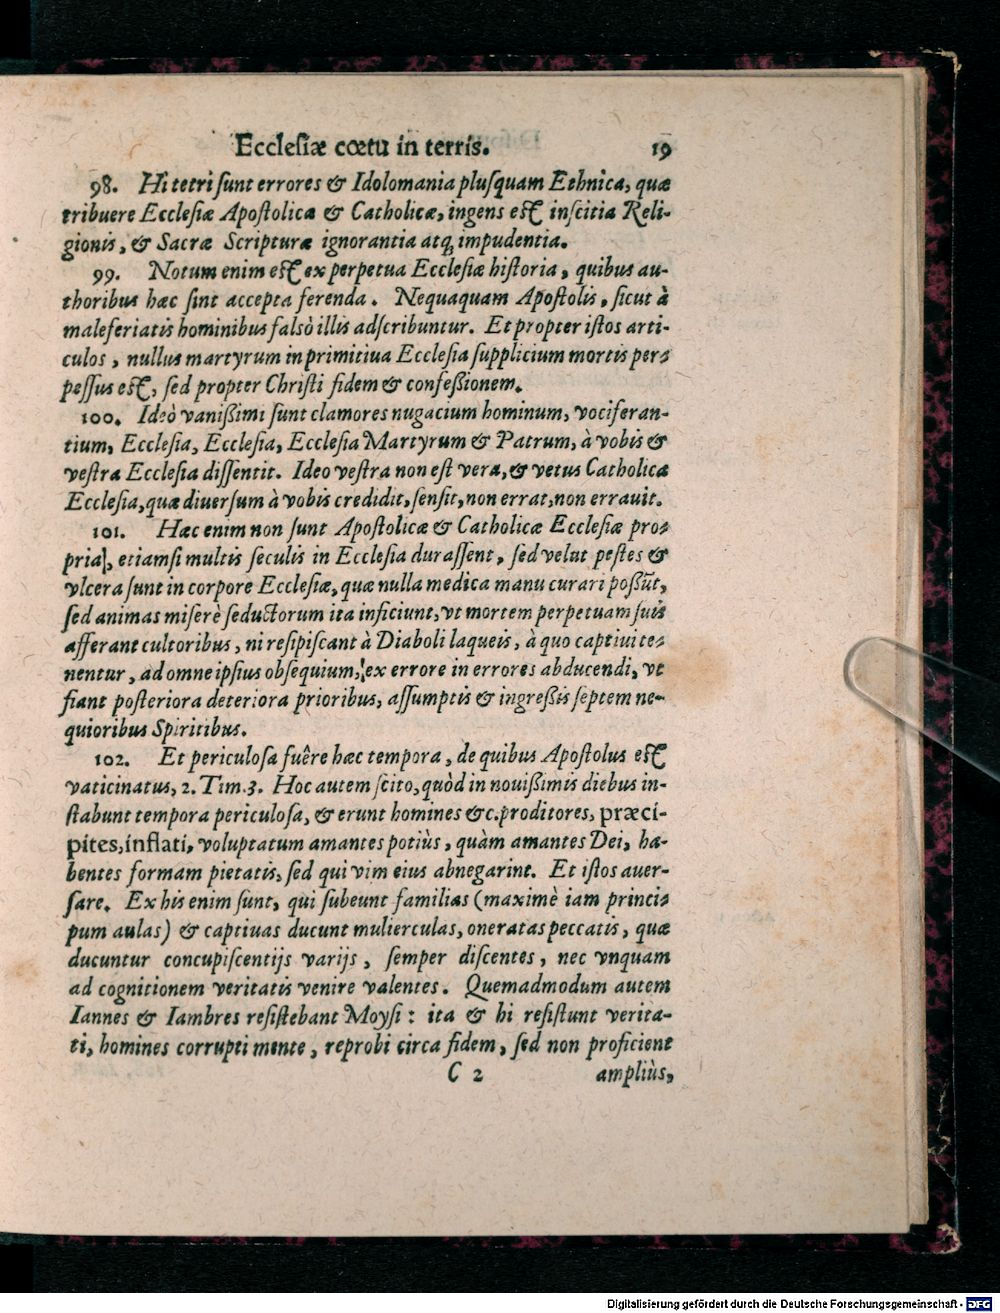 Ecclesiæ cœtu in terris. 19
98. Hi tetri sunt errores & Idolomania plusquam Ethnica, quæ
tribuere Ecclesiæ Apostolica & Catholicæ, ingens est inscitia Reli-
gionis, & Sacræ Scripturæ ignorantia atq; impudentia.
99. Notum enim est ex perpetua Ecclesiæ historia, quibus au-
thoribus hæc sint accepta ferenda. Nequaquam Apostolis, sicut à
maleferiatis hominibus falsò illis adscribuntur. Et propter istos arti-
culos, nullus martyrum in primitiua Ecclesia supplicium mortis per-
pessus est, sed propter Christi fidem & confeßionem.
100. Ideò vanißimi sunt clamores nugacium hominum, vociferan-
tium, Ecclesia, Ecclesia, Ecclesia Martyrum & Patrum, à vobis &
vestra Ecclesia dissentit. Ideo vestra non est vera, & vetus Catholica
Ecclesia, quæ diuersum à vobis credidit, sensit, non errat, non errauit.
101. Hæc enim non sunt Apostolicæ & Catholicæ Ecclesiæ pro-
pria, etiamsi multis seculis in Ecclesia durassent, sed velut pestes &
vlcera sunt in corpore Ecclesiæ, quæ nulla medica manu curari poßũt,
sed animas miserè seductorum ita inficiunt, vt mortem perpetuam suis
afferant cultoribus, ni resipiscant à Diaboli laqueis, à quo captiui te-
nentur, ad omne ipsius obsequium, ex errore in errores abducendi, vt
fiant posteriora deteriora prioribus, assumptis & ingreßis septem ne-
quioribus Spiritibus.
102. Et periculosa fuêre hæc tempora, de quibus Apostolus est
vaticinatus, 2. Tim. 3. Hoc autem scito, quòd in nouißimis diebus in-
stabunt tempora periculosa, & erunt homines &c. proditores, præci-
pites, inflati, voluptatum amantes potiùs, quàm amantes Dei, ha-
bentes formam pietatis, sed qui vim eius abnegarint. Et istos auer-
sare. Ex his enim sunt, qui subeunt familias (maximè iam princi-
pum aulas) & captiuas ducunt mulierculas, oneratas peccatis, quæ
ducuntur concupiscentijs varijs, semper discentes, nec vnquam
ad cognitionem veritatis venire valentes. Quemadmodum autem
Iannes & Iambres resistebant Moysi: ita & hi resistunt verita-
ti, homines corrupti mente, reprobi circa fidem, sed non proficient
C 2 ampliùs,
Digitalisierung gefördert durch die Deutsche Forschungsgemeinschaft - DFG